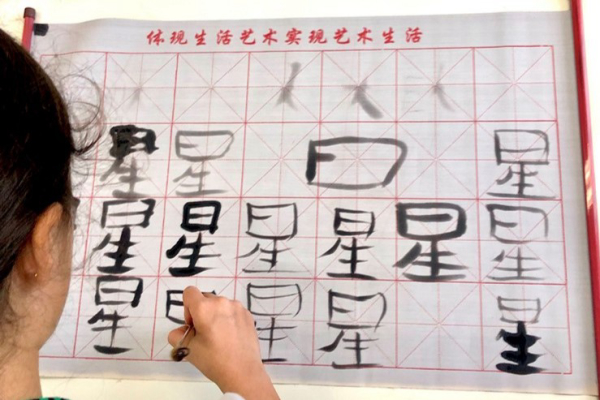 体现生活艺术实现艺术生活
星 星 日 星
星 星 星 星 星 星
星 日 星 星 星